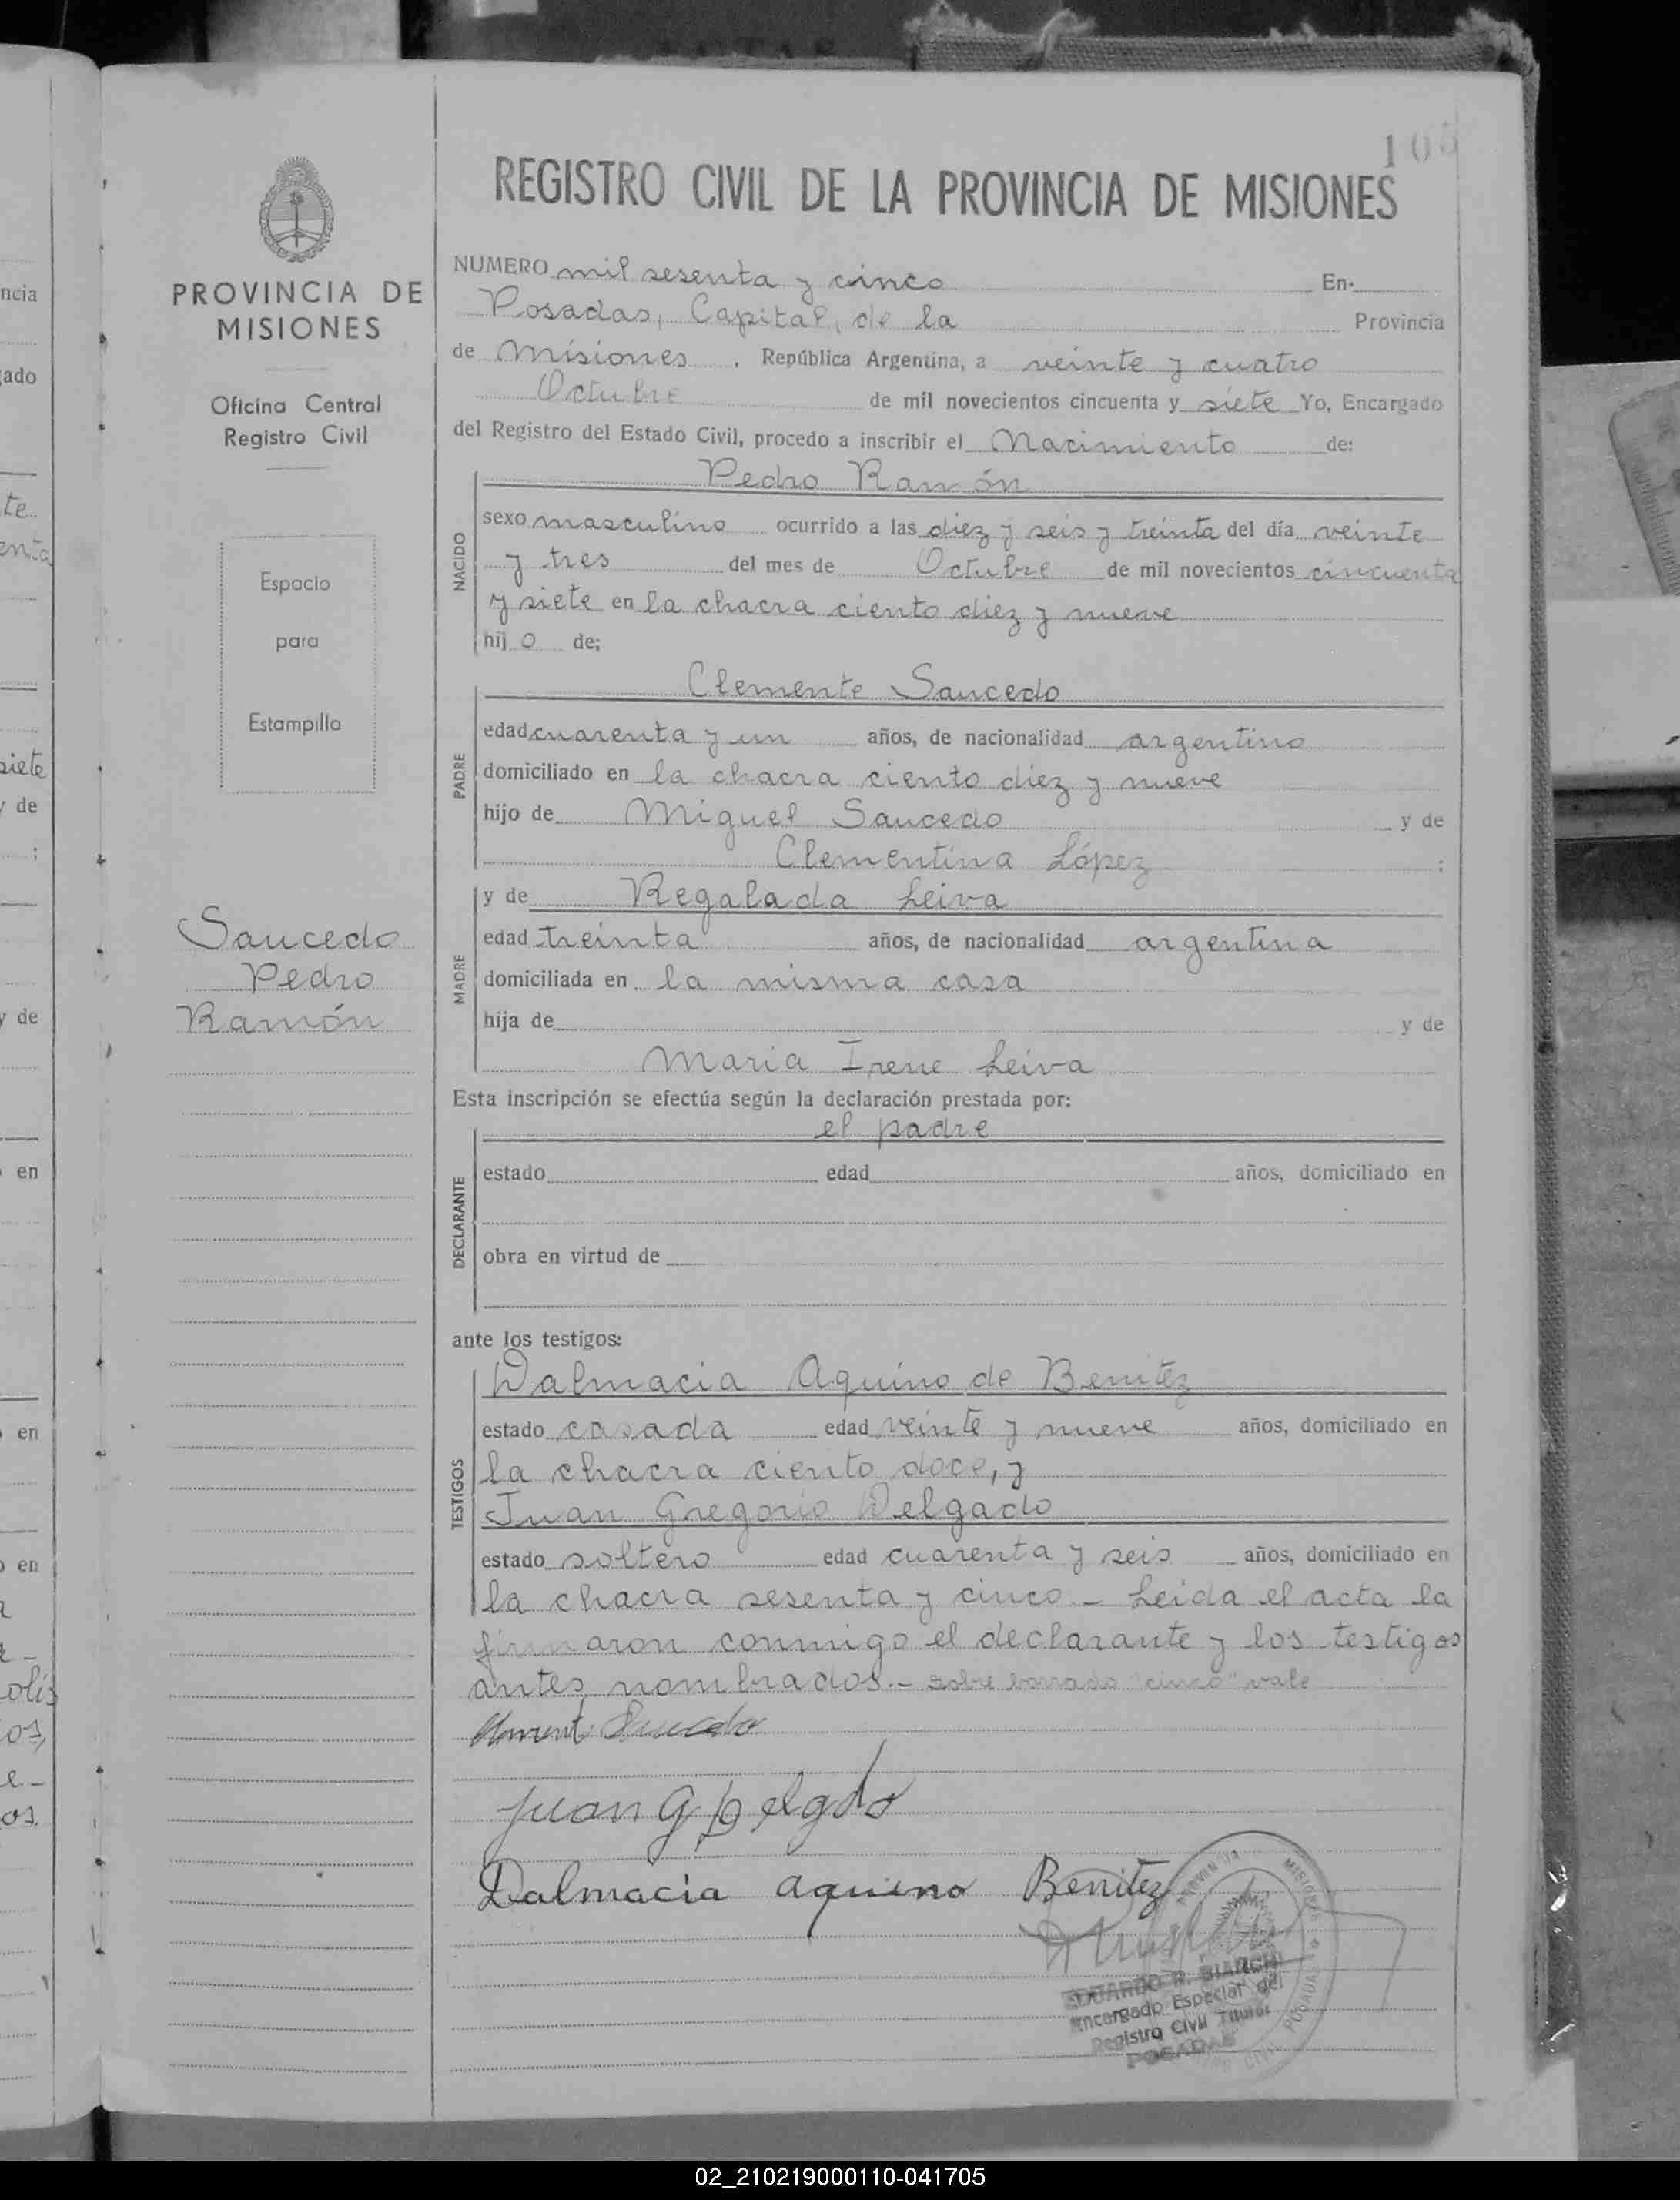 105
REGISTRO CIVIL DE LA PROVINCIA DE MISIONES
PROVINCIA DE
MISIONES
Oficina Central
Registro Civil
Espacio
para
Estampilla
Saucedo
Pedro
Ramón
NUMERO mil sesenta y cinco En
Posadas, Capital, de la Provincia
de Misiones. República Argentina, a veinte y cuatro
Octubre de mil novecientos cincuenta y siete Yo, Encargado
del Registro del Estado Civil, procedo a inscribir el Nacimiento de:
Pedro Ramón
NACIDO
sexo masculino ocurrido a las diez y seis y treinta del día veinte
y tres del mes de Octubre de mil novecientos cincuenta
y siete en la chacra ciento diez y nueve
hijo de;
Clemente Saucedo
PADRE
edad cuarenta y un años, de nacionalidad argentino
domiciliado en la chacra ciento diez y nueve
hijo de Miguel Saucedo y de
Clementina López ;
y de Regalada Leiva
MADRE
edad treinta años, de nacionalidad argentina
domiciliada en la misma casa
hija de y de
Maria Irene Leiva
Esta inscripción se efectúa según la declaración prestada por:
el padre
DECLARANTE
estado edad años, domiciliado en
obra en virtud de
ante los testigos:
Dalmacia Aquino de Benitez
TESTIGOS
estado casada edad veinte y nueve años, domiciliado en
la chacra ciento doce, y
Juan Gregorio Delgado
estado soltero edad cuarenta y seis años, domiciliado en
la chacra sesenta y cinco.- Leida el acta la
firmaron conmigo el declarante y los testigos
antes nombrados.- sobre borrado "cinco" vale
Juan G Delgado
Dalmacia aquino Benitez
EDUARDO R. BIANCHI
Encargado Especial del
Registro Civil Titular
POSADAS
02_210219000110-041705